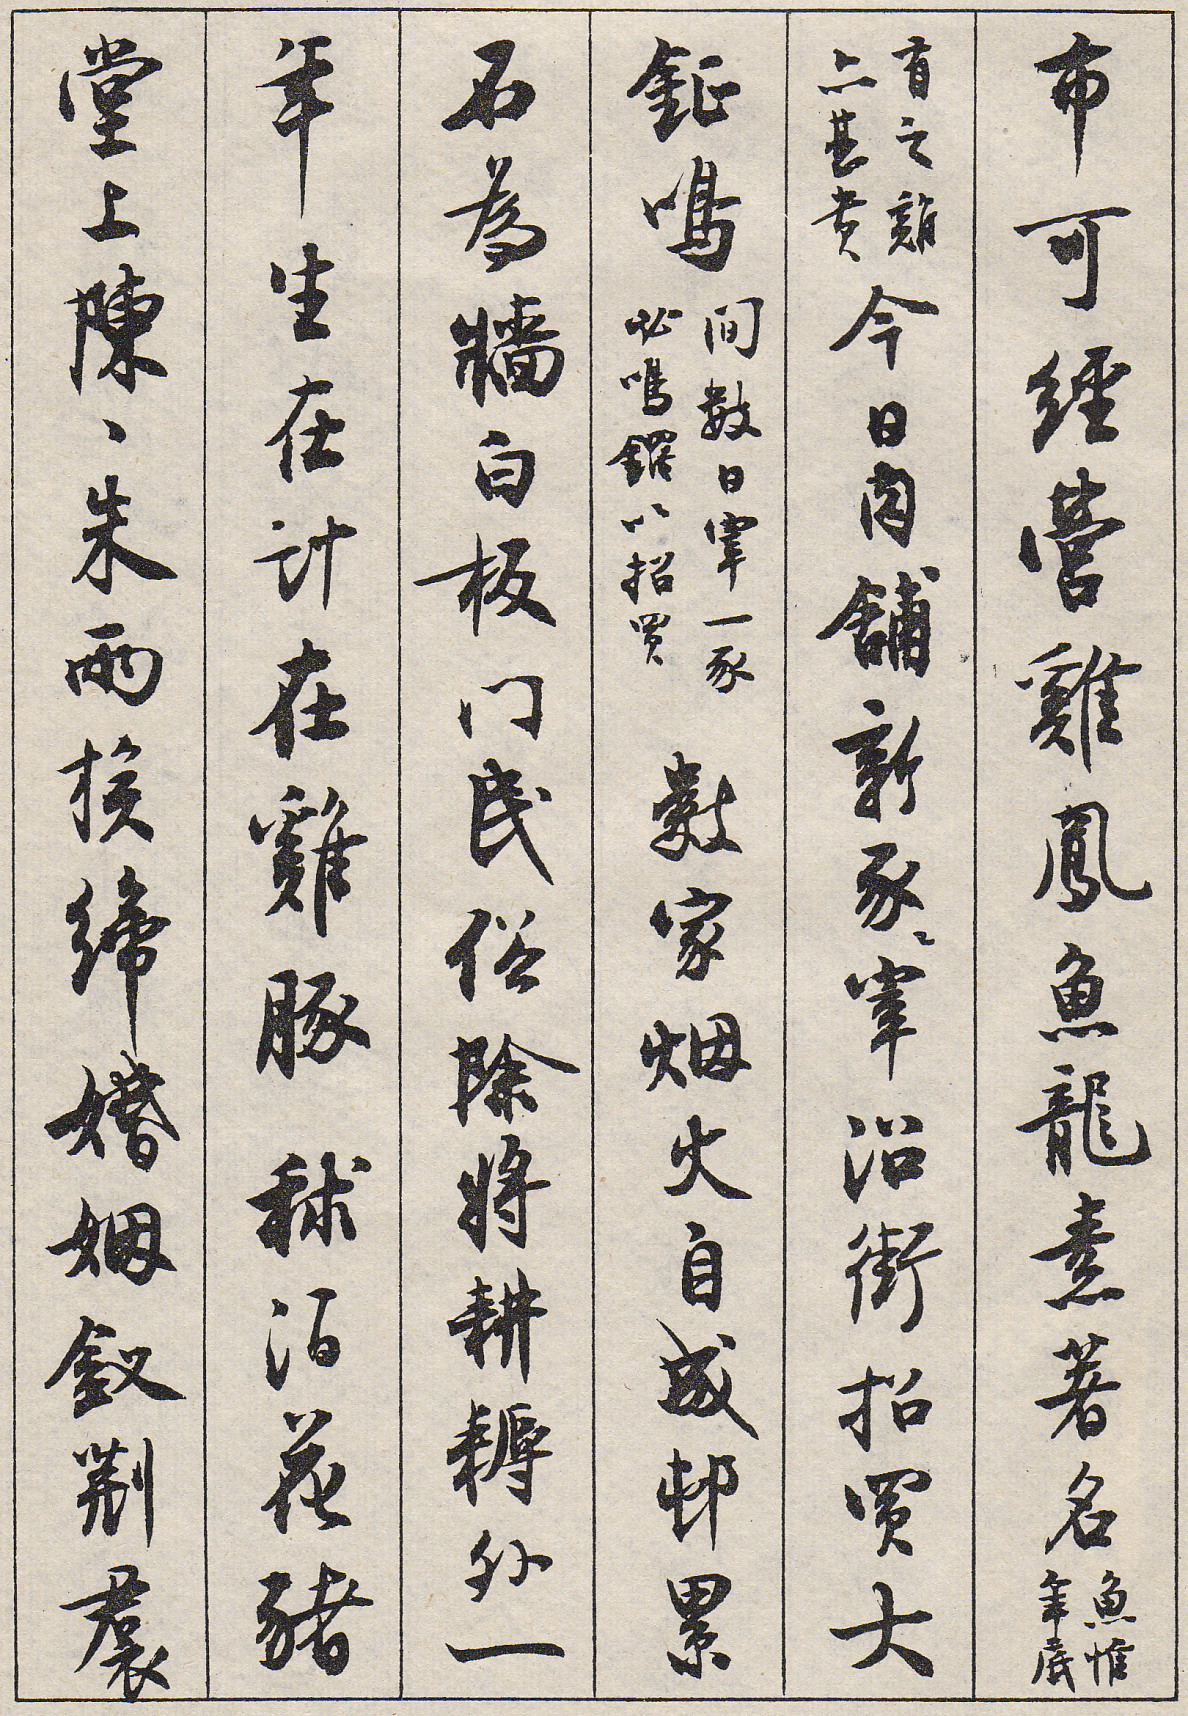 布可經營雞鳳魚龍素著名魚惟年底
有之雞亦甚貴今日肉舖新豕宰沿街招買大
鉦鳴間數日宰一豕必鳴鑼以招買數家烟火自成邨累
石為牆白板门民俗除將耕耨外一
年生在計在雞豚秫酒花豬
堂上陳〻朱兩族締婚姻釵荆裠